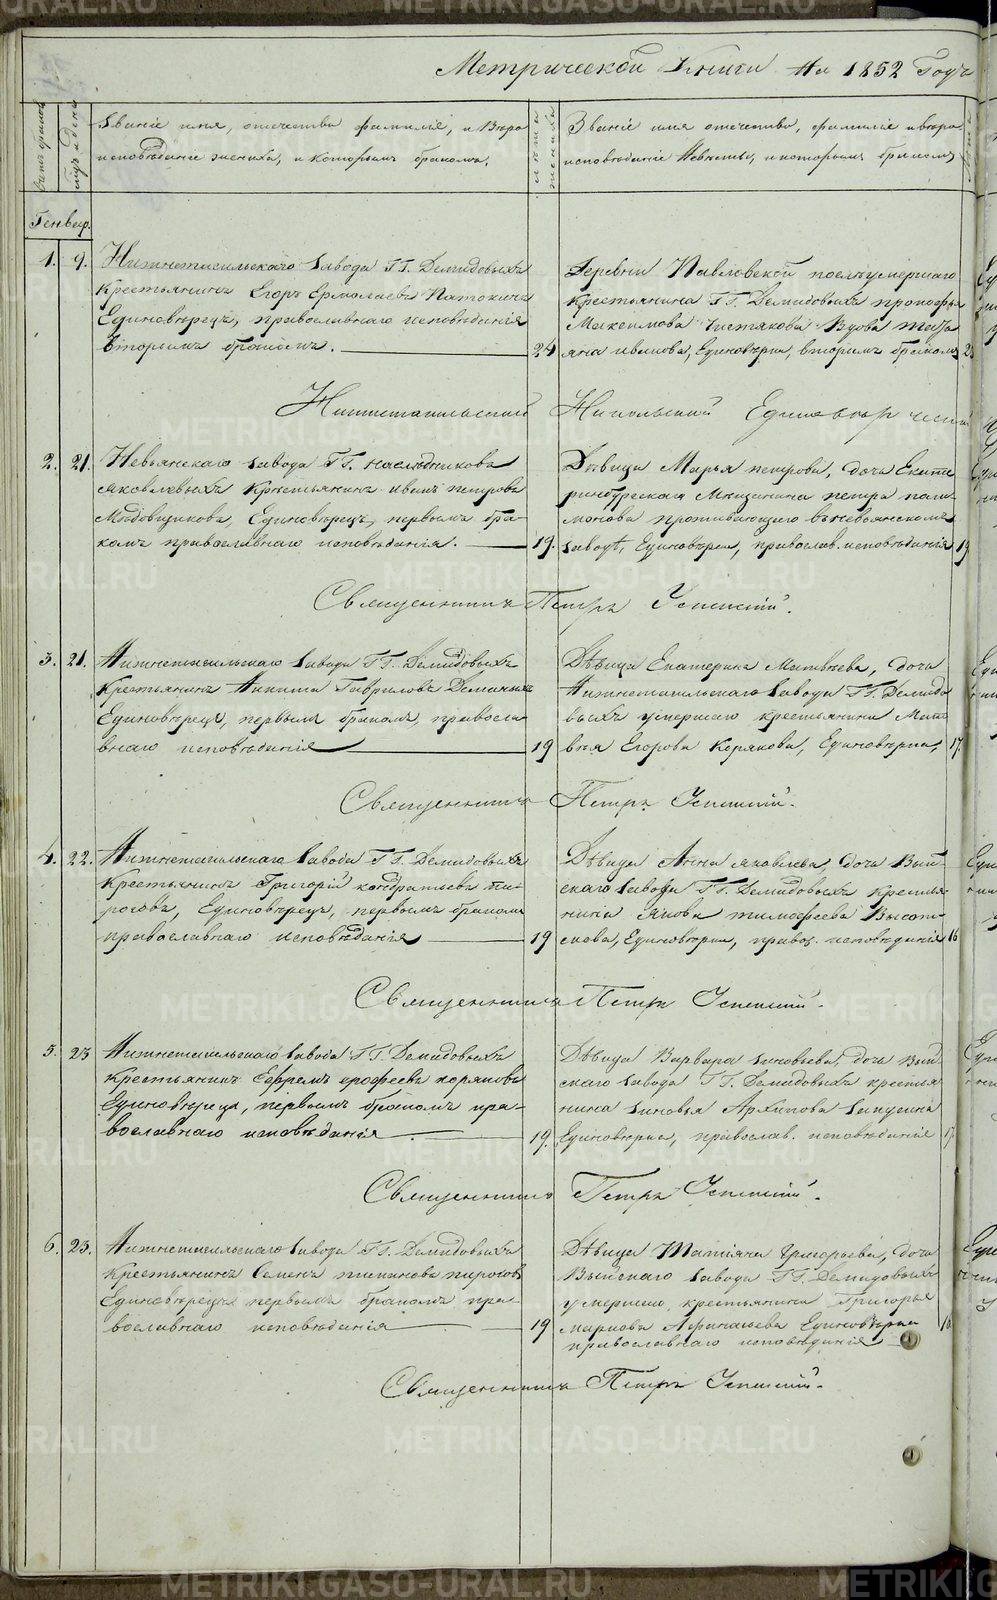 Метрической Книги На 1852 Годъ
Званіе имя, отечество фамилія, и вѣро
исповѣданіе жениха, и которымъ бракомъ.
Званіе имя отечество, фамиліе и вѣро
исповѣданіе невѣсты, и которымъ бракомъ
Генвар.
1. 9. Нижнетагильскаго Завода ГГ. Демидовыхъ
Крестьянинъ Егоръ Ермолаевъ
Единовѣрецъ, православнаго исповѣданія
вторымъ бракомъ. 24
Деревни Павловской послѣ умершаго
крестьянина ГГ. Демидовыхъ прокофья
Максимова Чистякова Вдова Татья
яна иванова, Единовѣрка, вторымъ бракомъ
Нижнетагильский Никольский Единоверческий
2. 21. Невьянскаго завода ГГ. наслѣдниковъ
яковлевыхъ Крестьянинъ иванъ петровъ
Мѣдовщиковъ, Единовѣрецъ, первымъ бра-
комъ православнаго исповѣданія. 19.
Дѣвица Марья петрова, дочь Екате
ринбургскаго Мѣщанина петра пали
монова проживающаго въ невьянскомъ
заводѣ, Единовѣрка, православ. исповѣданія 19
Священникъ Петръ Успенскій.
3. 21. Нижнетагильскаго завода ГГ. Демидовыхъ
Крестьянинъ Никита Гавриловъ
Единовѣрецъ, первымъ бракомъ, правосла
внаго исповѣданія 19
Дѣвица Екатерина Матвѣева, дочь
Нижнетагильскаго завода ГГ. Демидо
выхъ умершаго крестьянина Мат
вѣя Егорова Корякова, Единовѣрка, 17.
Священникъ Петръ Успенскій.
4. 22. Нижнетагильскаго завода ГГ. Демидовыхъ
Крестьянинъ Григорій кондратьевъ пи-
роговъ, Единовѣрецъ, первымъ бракомъ
православнаго исповѣданія 19
Дѣвица Анна яковлева, дочь Вый-
скаго завода ГГ. Демидовыхъ крестья
нина Якова тимофеева
Единовѣрка, правос. исповѣданія 16
Священникъ Петръ Успенскій.
5. 23 Нижнетагильскаго завода ГГ. Демидовыхъ
крестьянинъ Ефремъ ерофеевъ коряковъ
Единовѣрецъ, первымъ бракомъ пра-
вославнаго исповѣданія 19.
Дѣвица Варвара Зиновьева, дочь Вый
скаго завода ГГ. Демидовыхъ крестья
нина Зиновья Архипова
Единовѣрка, православ. исповѣданія 17
Священникъ Петръ Успенскій.
6. 23. Нижнетагильскаго завода ГГ. Демидовыхъ
Крестьянинъ Семенъ пироговъ
Единовѣрецъ первымъ бракомъ пра-
вославнаго исповѣданія 19
Дѣвица Татіяна Григорьева, дочь
Выйскаго завода ГГ. Демидовыхъ
умершаго крестьянина Григорья
Маркова Афанасьева Единовѣрка
православнаго исповѣданія
Священникъ Петръ Успенскій.
METRIKI.GASO-URAL.RU